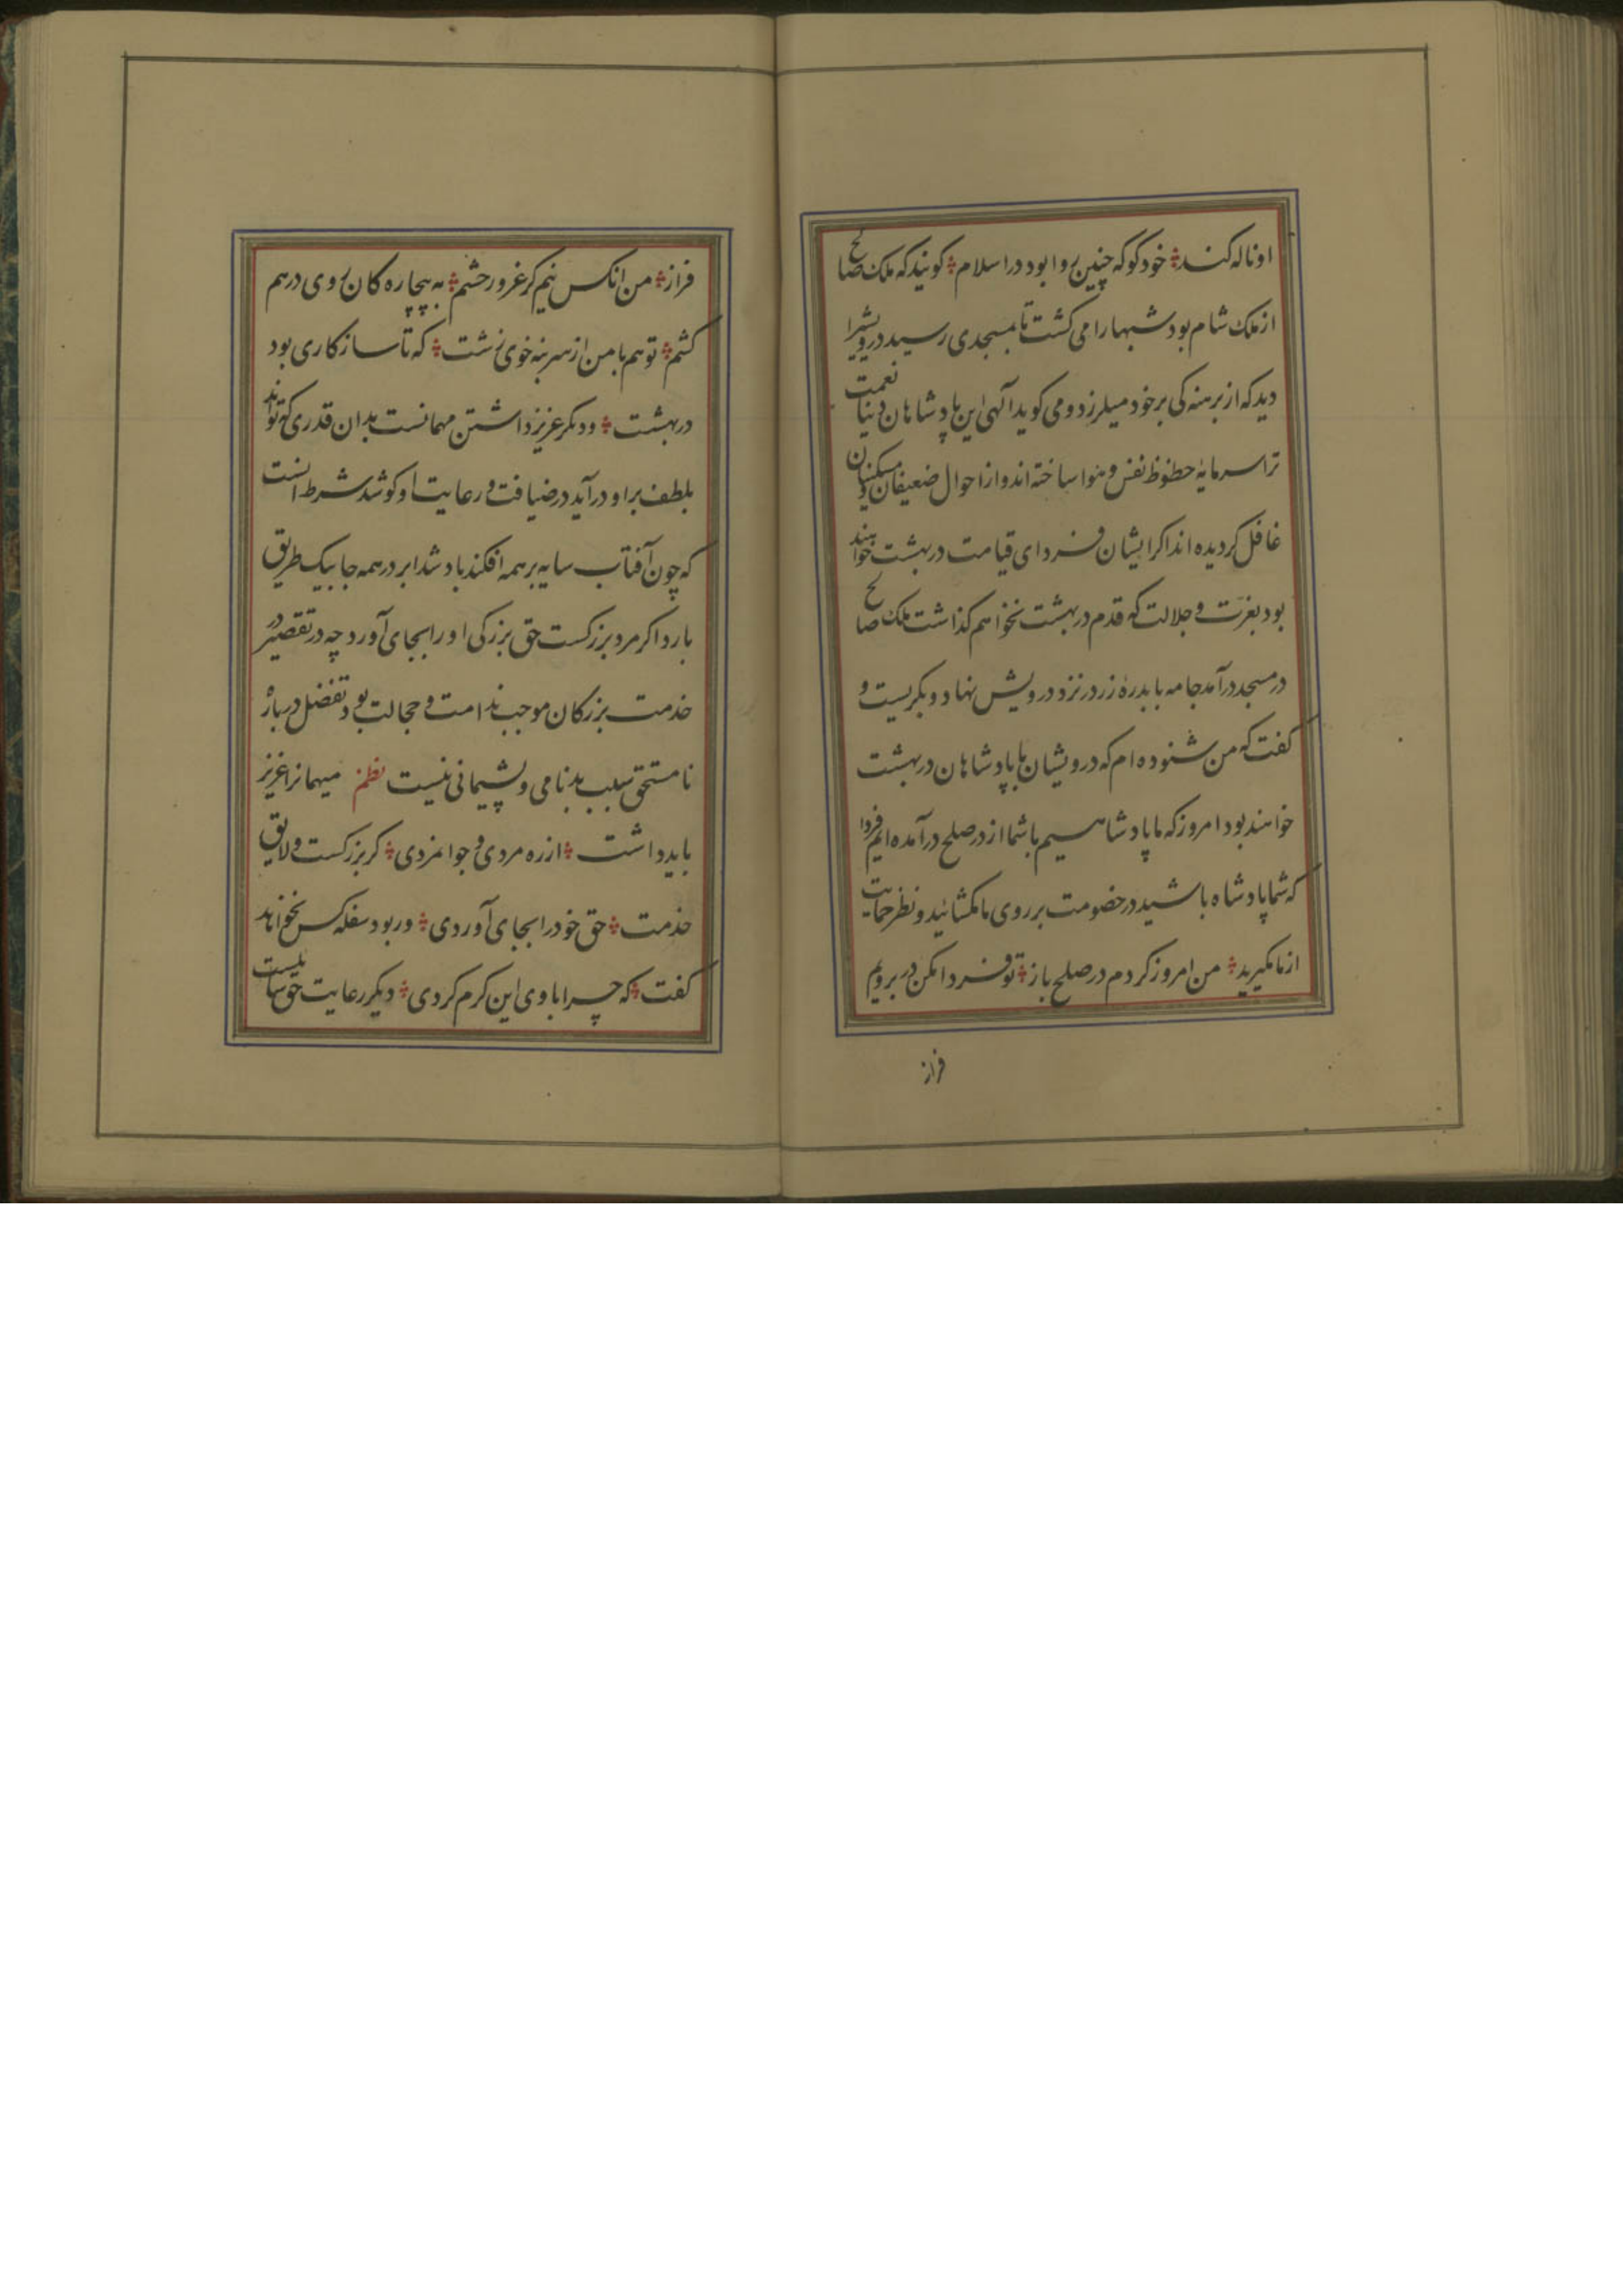 او ناله کند خود کو که چنین روا بود در اسلام کویند که ملک صالح
از ملک شام بود شبها را می کشت تا بمسجدی رسید درویشیرا
دید که از برهنه کی بر خود میلرزد و می کوید آلهی این پادشاهان دنیا نعمت
ترا سرمایهٔ حظوظ نفس و هوا ساخته اند و از احوال ضعیفان و مسکینان
غافل کردیده اند اکر ایشان فردای قیامت در بهشت خواهند
بود بعزت و جلالت که قدم در بهشت نخواهم کذاشت ملک صالح
در مسجد در آمد جامه با بدرهٔ زر در نزد درویش نهاد و بکریست و
کفت که من شنوده ام که درویشان با پادشاهان در بهشت
خواهند بود امروز که ما پادشاهیم با شما از در صلح در آمده ایم فردا
که شما پادشاه باشید در خصومت بر روی ما مکشائید و نظر حمایت
از ما مکیرید من امروز کردم در صلح باز تو فردا مکن در برویم
فراز
فراز من انکس نیم کز غرور حشم به بیچاره کان روی درهم
کشم تو هم با من از سر بنه خوی زشت که تا سازکاری بود
در بهشت و دیکر عزیز داشتن مهمانست بدان قدری که تواند
بلطف بر او در آید در ضیافت و رعایت او کوشد شرط انست
که چون آفتاب سایه بر همه افکند باد شد ابر در همه جا بیک طریق
بارد اکر مرد بزرکست حق بزرکی او را بجای آورد چه در تقصیر در
خدمت بزرکان موجب ندامت و خجالت بود و تفضل در بارهٔ
نا مستحق سبب بدنامی و پشیمانی نیست نظم میهمانرا عزیز
باید داشت از ره مردی و جوانمردی کر بزرکست و لایق
خدمت حق خود را بجای آوردی ور بود سفله کس نخواهد
کفت که چرا با وی این کرم کردی دیکر رعایت